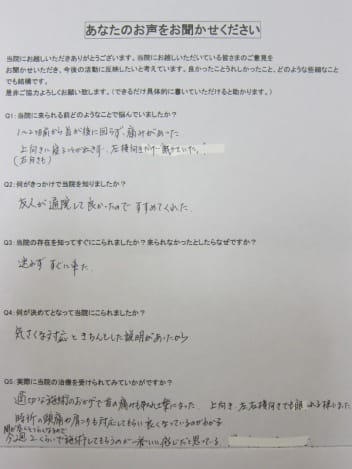 あなたのお声をお聞かせください
当院にお越しいただきありがとうございます。当院にお越しいただいている皆さまのご意見を
お聞かせいただき、今後の活動に反映したいと考えています。良かったことうれしかったこと、どのような些細なこと
でも結構です。
是非ご協力よろしくお願い致します。(できるだけ具体的に書いていただけると助かります。)
Q1:当院に来られる前どのようなことで悩んでいましたか?
首が後に回らず、痛みがあった
上向きに寝ることができず、左横向きだけ
Q2:何がきっかけで当院を知りましたか?
友人が通院して良かったのですすめてくれた。
Q3:当院の存在を知ってすぐにこられましたか?来られなかったとしたらなぜですか?
迷わずすぐに来た。
Q4:何が決めてとなって当院にこられましたか?
気さくな対応ときちんとした説明があったから
Q5:実際に当院の治療を受けられてみていかがですか?
適切な施術のおかげで首の痛みも 楽になった。上向き、左右横向きでも眠れる様になった
時折の頭痛や肩こりも対応してもらい良くなっているのがわかる
くらいで施術してもらうのが一番いい感じだと思ってる。